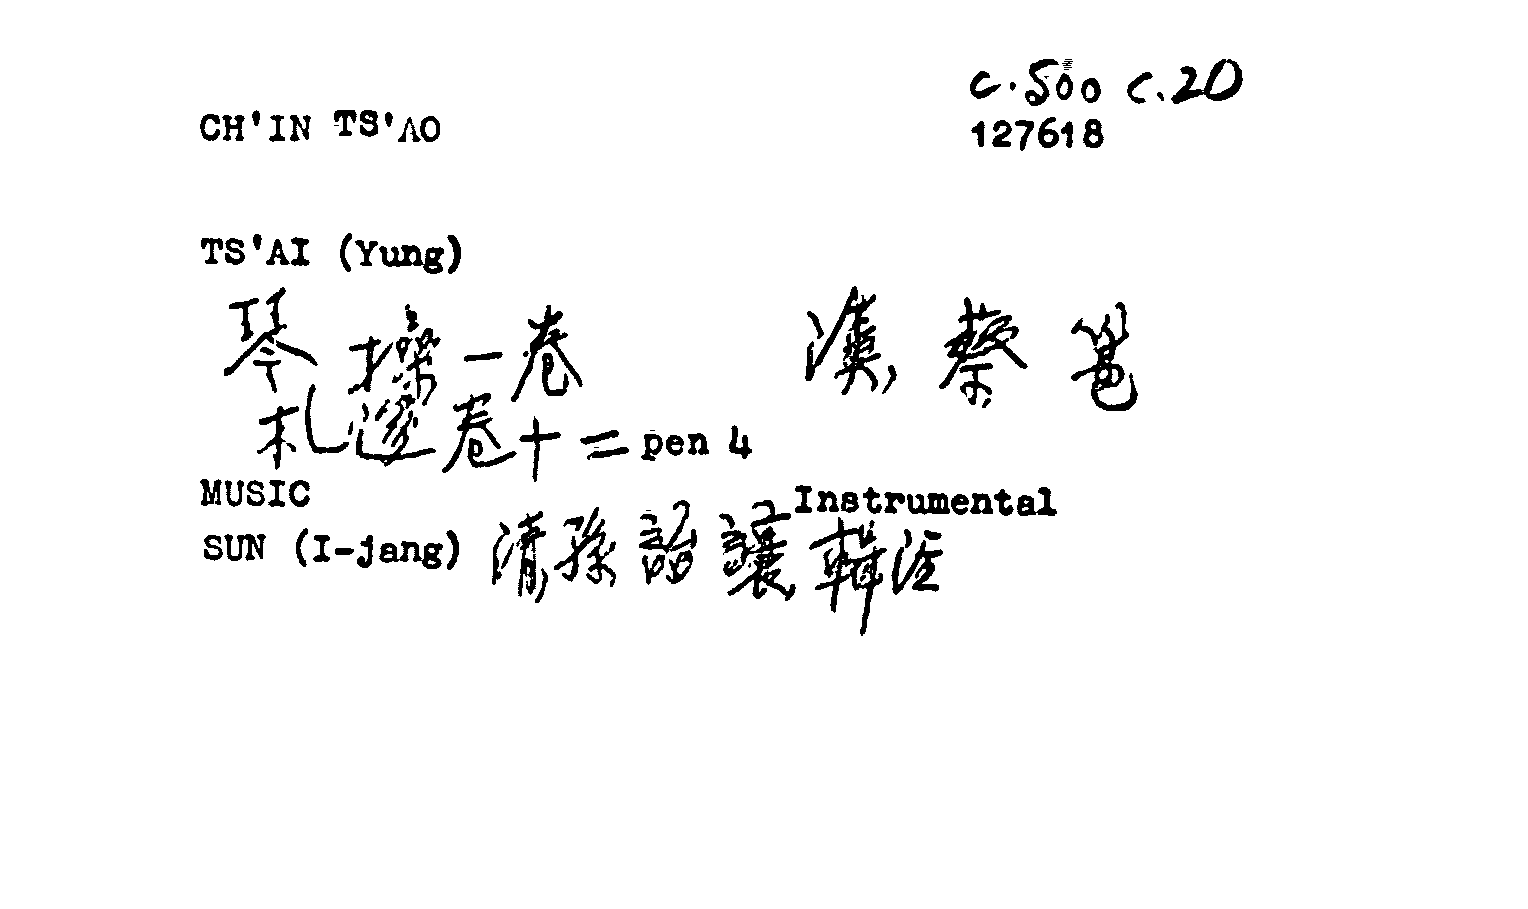 c.500 c.20
CH'IN TS'AO 127618
TS'AI (Yung)
琴操一卷 漢, 蔡邕
札迻卷十二 pen 4
MUSIC Instrumental
SUN (I-jang) 清, 孫詒讓, 輯